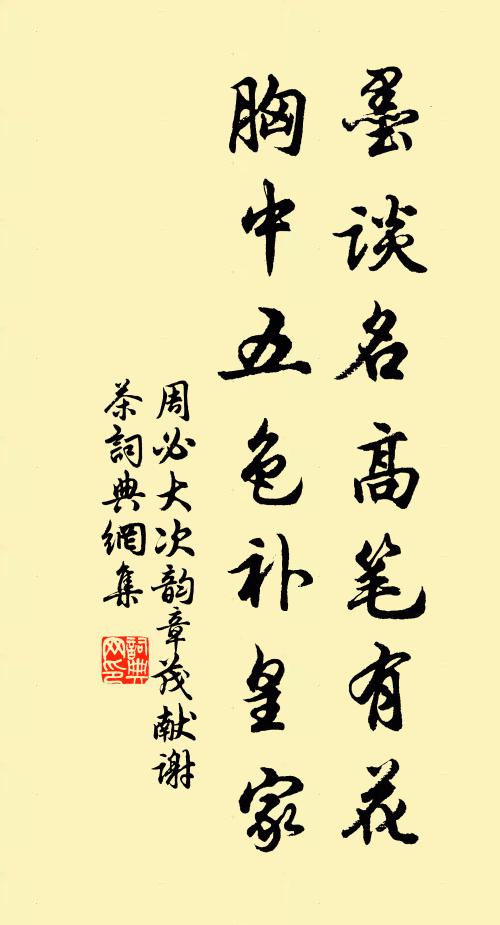 墨谈名高笔有花
胸中五色补皇家
周必大次韵章茂献谢
茶詞典網集
詞典网印